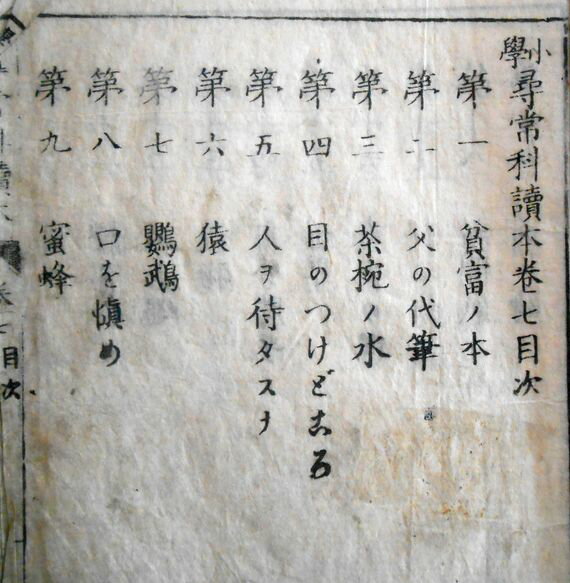 小學尋常科讀本巻七目次
第一 貧富ノ本
第二 父の代筆
第三 茶椀ノ水
第四 目のつけどころ
第五 人ヲ待タスナ
第六 猿
第七 鸚鵡
第八 口を愼め
第九 蜜蜂
巻七 目次